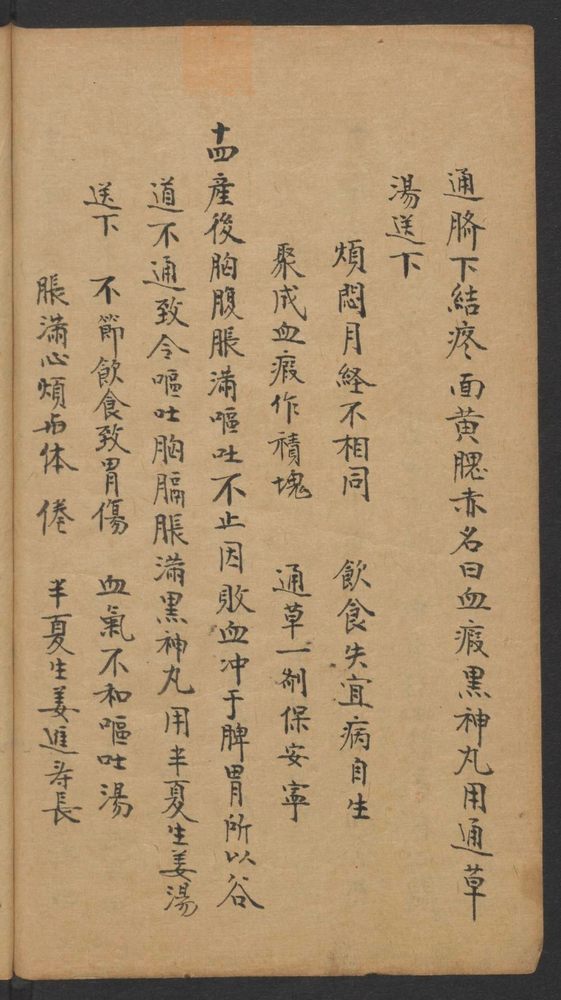 通臍下結疼面黄腮赤名曰血瘕黒神丸用通草
湯送下
煩悶月経不相同 飲食失宜病自生
聚成血瘕作積塊 通草一剤保安寧
十四産後胸腹脹滿嘔吐不止因敗血冲于脾胃所以谷
道不通致令嘔吐胸膈脹滿黒神丸用半夏生姜湯
送下 不節飲食致胃傷 血氣不和嘔吐湯
脹滿心煩而体倦 半夏生姜進寿長